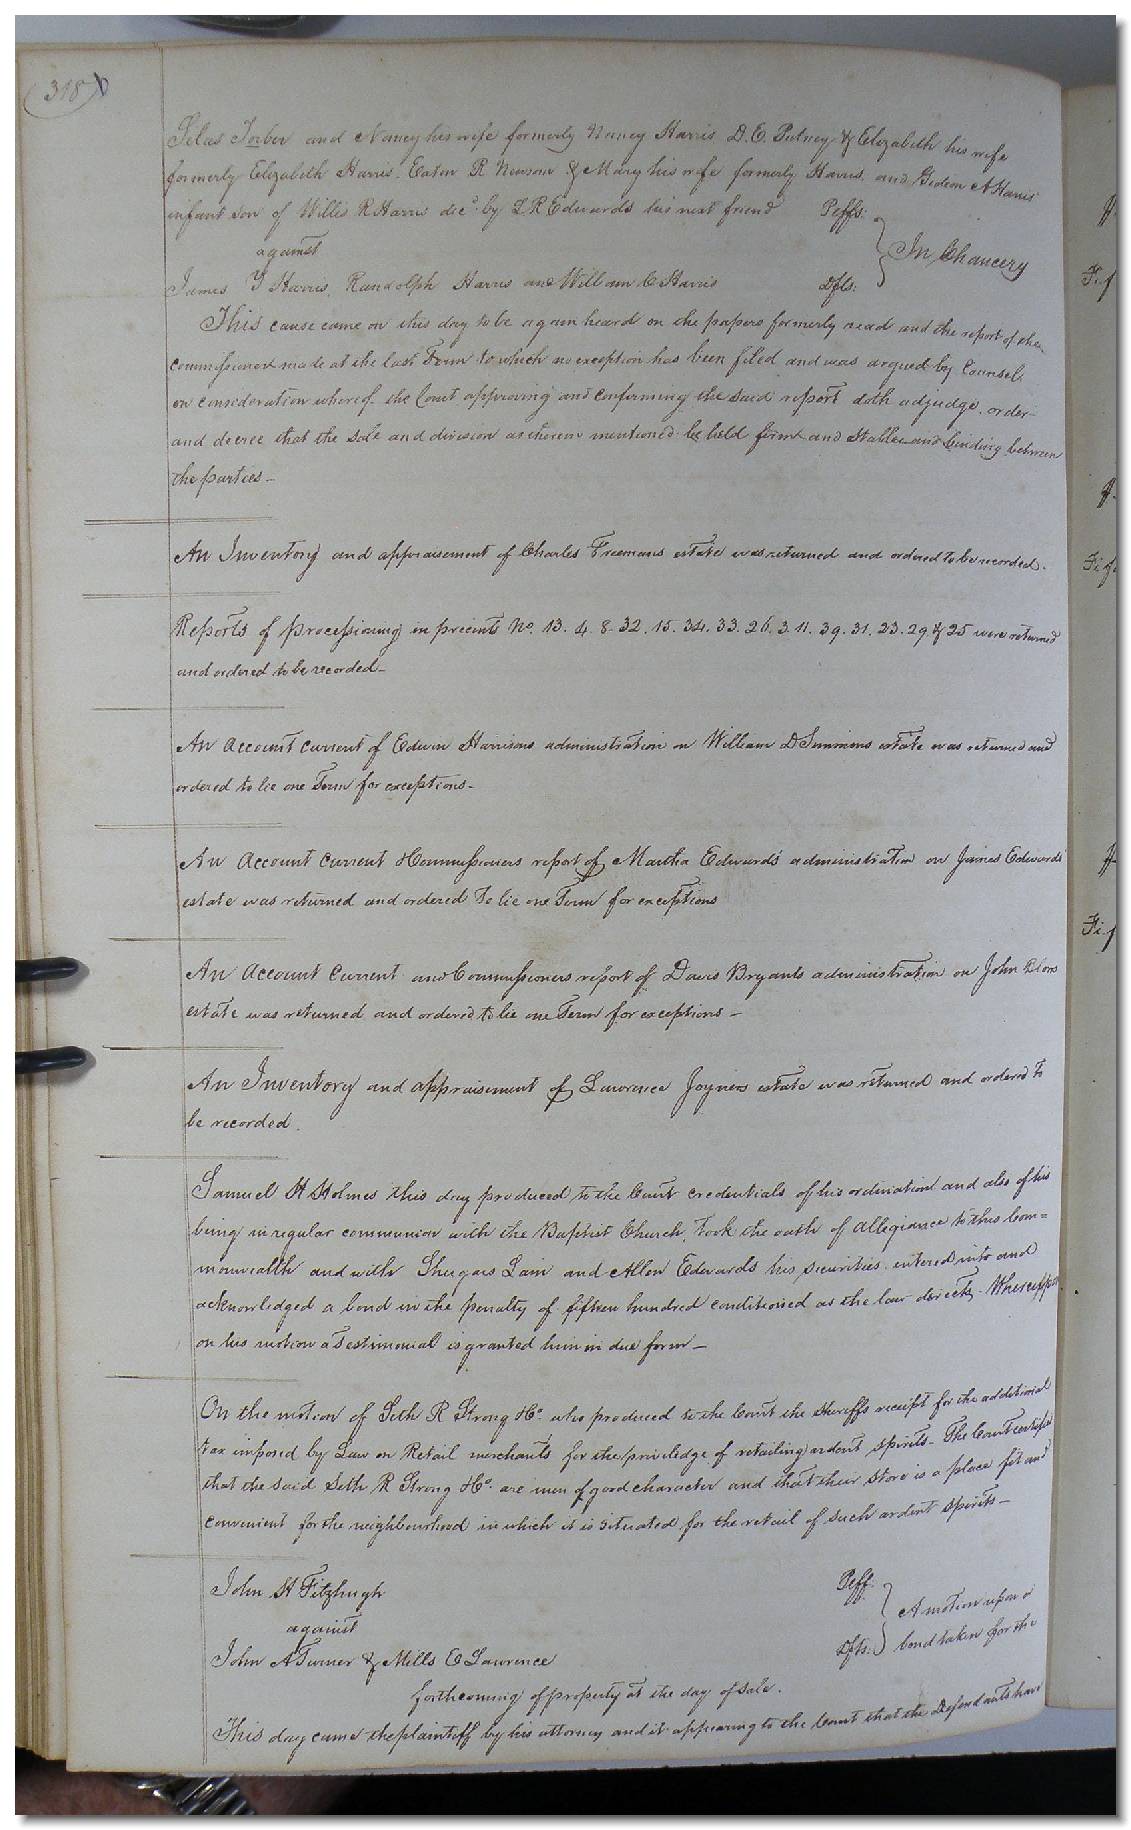 (318)
Silas Torber and Nancy his wife formerly Nancy Harris, D. E. Putney & Elizabeth his wife
formerly Elizabeth Harris. Eaton R Newsom & Mary his wife formerly Harris, and Gideon A Harris
infant son of Willis R Harris decd. by L R Edwards his next friend Plffs:
against In Chancery
James Y Harris, Randolph Harris and William C Harris Dfts:
This cause came on this day to be again heard on the papers formerly read and the report of the
commissioners made at the last Term to which no exception has been filed and was argued by Counsel.
on consideration whereof the Court approving and confirming the said report doth adjudge, order
and decree that the sale and division as therein mentioned be held firm and stable and binding between
the parties -
An Inventory and appraisement of Charles Freemans estate was returned and ordered to be recorded.
Reports of processioning in precincts No. 13. 4. 8. 32. 15. 34. 33. 26. 3. 11. 39. 31. 23. 29 & 25 were returned
and ordered to be recorded -
An Account current of Edwin Harrisons administration on William D Simmons estate was returned and
ordered to lie one Term for exceptions -
An Account Current & Commissioners report of Martha Edwards' administration on James Edwards'
estate was returned and ordered to lie one Term for exceptions
An Account Current and Commissioners report of Davis Bryants administration on John
estate was returned and ordered to lie one Term for exceptions -
An Inventory and appraisement of Lawrence Joyners estate was returned and ordered to
be recorded.
Samuel H Holmes this day produced to the Court credentials of his ordination and also of his
being in regular communion with the Baptist Church, took the oath of allegiance to this Com=
monwealth and with Shugars Lain and Allen Edwards his securities entered into and
acknowledged a bond in the penalty of fifteen hundred conditioned as the law directs - Whereupon
on his motion a Testimonial is granted him in due form -
On the motion of Seth R Strong & Co. who produced to the Court the Sheriffs receipt for the additional
tax imposed by Law on Retail merchants for the priviledge of retailing ardent spirits - The Court certifies
that the said Seth R Strong & Co. are men of good character and that their store is a place fit and
convenient for the neighbourhood in which it is situated for the retail of such ardent spirits -
John H Fitzhugh Plff.
against A motion upon a
John A Turner & Mills E Lawrence Dfts: bond taken for the
forthcoming of property at the day of sale.
This day came the plaintiff by his attorney and it appearing to the Court that the Defendants have